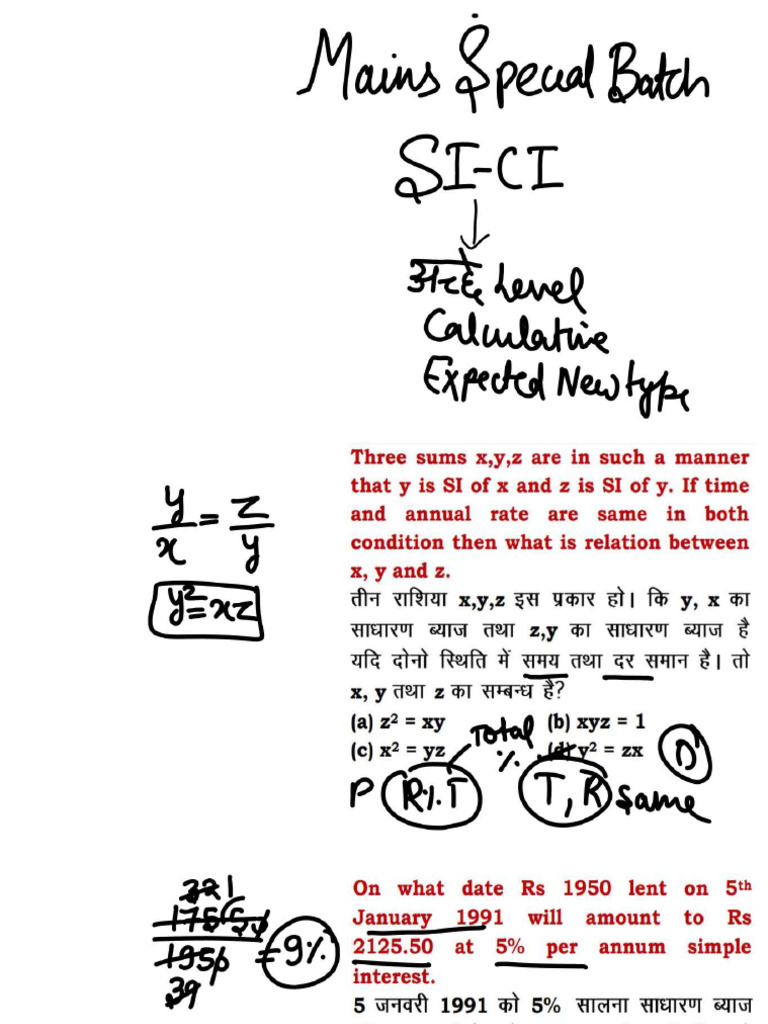 Mains Special Batch
SI-CI
Level
Calculative
Expected New type
Three sums x,y,z are in such a manner
that y is SI of x and z is SI of y. If time
and annual rate are same in both
condition then what is relation between
x, y and z.
y/x = z/y
y²=xz
तीन राशिया x,y,z इस प्रकार हो। कि y, x का
साधारण ब्याज तथा z,y का साधारण ब्याज है
यदि दोनो स्थिति में समय तथा दर समान है। तो
x, y तथा z का सम्बन्ध है?
(a) z² = xy (b) xyz = 1
(c) x² = yz (d) y² = zx
Total %
D
P R%.T T, R same
On what date Rs 1950 lent on 5th
January 1991 will amount to Rs
2125.50 at 5% per annum simple
interest.
= 9%
39
5 जनवरी 1991 को 5% सालना साधारण ब्याज